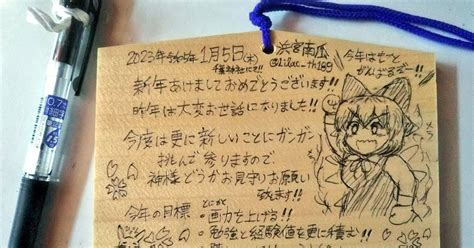 2023年令和5年1月5日(木)
浜宮南瓜
新年あけましておめでとうございます!!
昨年は大変お世話になりました!!
今度は更に新しいことにガンガン
挑んで参りますので、
神様どうかお見守りお願い
致します!!
今年の目標
とにかく
画力を上げる!!
勉強と経験値を更に積む!!
今年はもっと
がんばるぞー!!
メラ
0.7